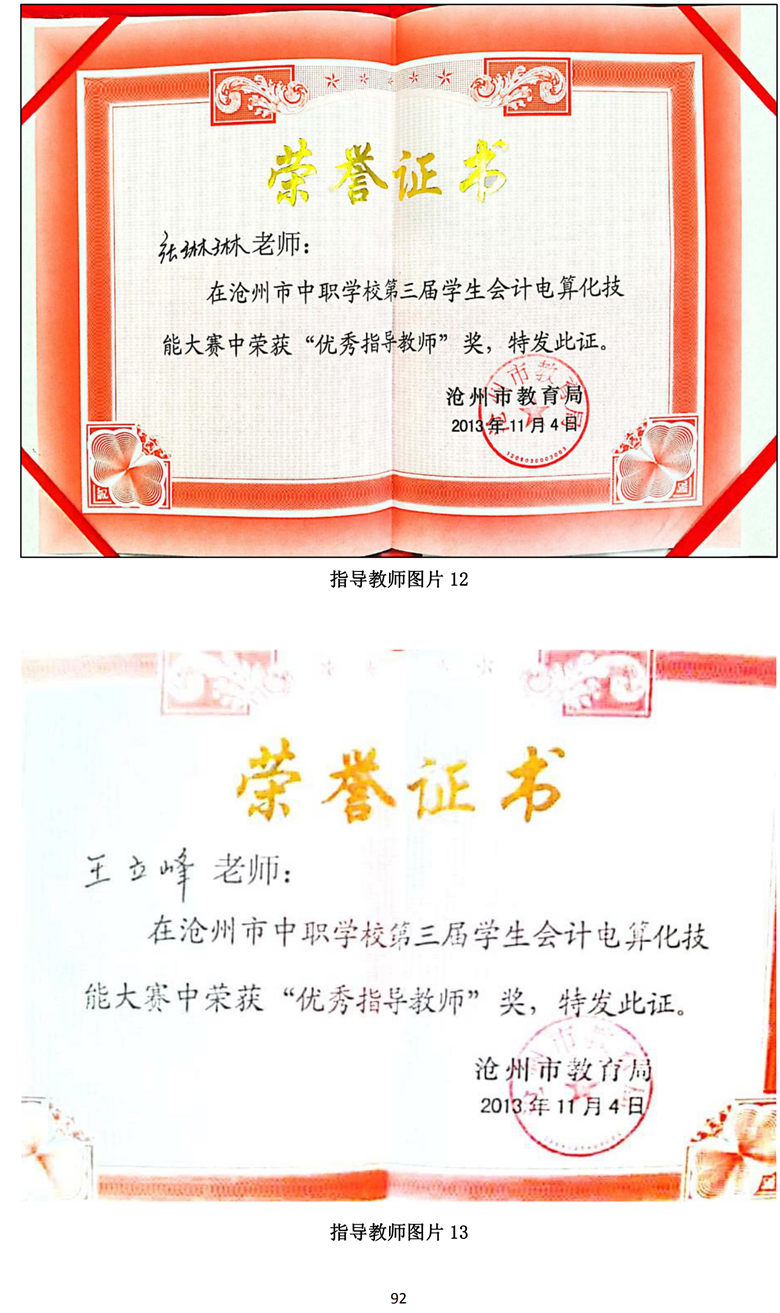 荣誉证书
张琳琳老师：
在沧州市中职学校第三届学生会计电算化技
能大赛中荣获“优秀指导教师”奖，特发此证。
沧州市教育局
2013年11月4日
沧州市教育局
指导教师图片 12
荣誉证书
王立峰 老师：
在沧州市中职学校第三届学生会计电算化技
能大赛中荣获“优秀指导教师”奖，特发此证。
沧州市教育局
2013年11月4日
指导教师图片 13
92